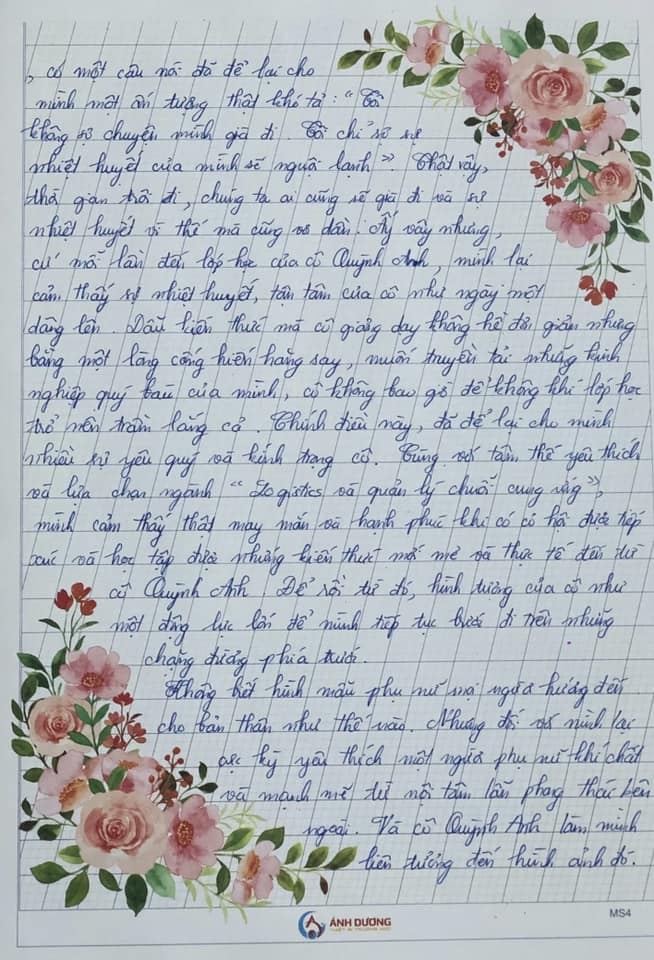 , có một câu nói đã để lại cho
mình một ấn tượng thật khó tả : " Tôi
không sợ chuyện mình già đi. Tôi chỉ sợ sự
nhiệt huyết của mình sẽ nguội lạnh ". Thật vậy,
thời gian trôi đi, chúng ta ai cũng sẽ già đi và sự
nhiệt huyết vì thế mà cũng vơi dần. Ấy vậy nhưng,
cứ mỗi lần đến lớp học của cô Quỳnh Anh, mình lại
cảm thấy sự nhiệt huyết, tận tâm của cô như ngày một
dâng lên. Dẫu kiến thức mà cô giảng dạy không hề đơn giản nhưng
bằng một lòng cống hiến hăng say, muốn truyền tải những kinh
nghiệp quý báu của mình, cô không bao giờ để không khí lớp học
trở nên trầm lắng cả. Chính điều này, đã để lại cho mình
nhiều sự yêu quý và kính trọng cô. Cùng với tâm thế yêu thích
và lựa chọn ngành " Logistics và quản lý chuỗi cung ứng ",
mình cảm thấy thật may mắn và hạnh phúc khi có cơ hội được tiếp
xúc và học tập được những kiến thức mới mẻ và thực tế đến từ
cô Quỳnh Anh. Để rồi từ đó, hình tượng của cô như
một động lực lớn để mình tiếp tục bước đi trên những
chặng đường phía trước.
Không biết hình mẫu phụ nữ mọi người hướng đến
cho bản thân như thế nào. Nhưng đối với mình lại
cực kỳ yêu thích một người phụ nữ khí chất
và mạnh mẽ từ nội tâm lẫn phong thái bên
ngoài. Và cô Quỳnh Anh làm mình
liên tưởng đến hình ảnh đó.
ÁNH DƯƠNG
MS4